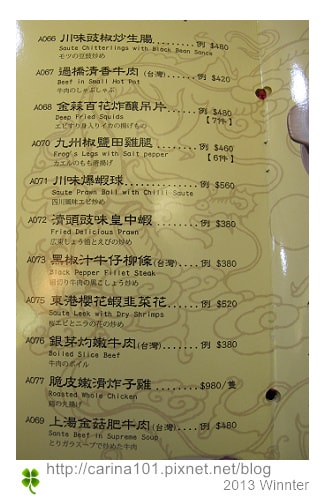 A066 川味豉椒炒生腸........例 $480
Saute Chitterlings with Black Bean Sauce
モツの豆豉炒め
A067 過橋清香牛肉(台灣)......例 $420
Beef in Small Hot Pot
牛肉のしゃぶしゃぶ
A068 金蒜百花炸釀吊片.......例 $480
Deep Fried Squids 【7件】
エビすり身入りイカの揚げもの
A070 九州椒鹽田雞腿........例 $460
Frog's Legs with Salt pepper 【6件】
カエルのもも唐揚げ
A071 川味爆蝦球..........例 $560
Saute Prawn Ball with Chilli Saute
四川風味エビ炒め
A072 濟頭豉味皇中蝦.......例 $380
Fried Delicious Prawn
広東しょう油とえびの炒め
A073 黑椒汁牛仔柳條(台灣).....例 $380
Black Pepper Fillet Steak
細切り牛肉の黒こしょう炒め
A075 東港櫻花蝦韭菜花......例 $520
Saute Leek with Dry Shrimps
桜エビとニラの花の炒め
A076 銀芽灼嫩牛肉(台灣).......例 $380
Boiled Slice Beef
牛肉のボイル
A077 脆皮嫩滑炸子雞.......$980/隻
Roasted Whole Chicken
鶏の丸揚げ
A069 上湯金菇肥牛肉(台灣)....例 $480
Sante Beef in Supreme Soup
とりガラスープで炒めた牛肉
http://carina101.pixnet.net/blog
2013 Winnter